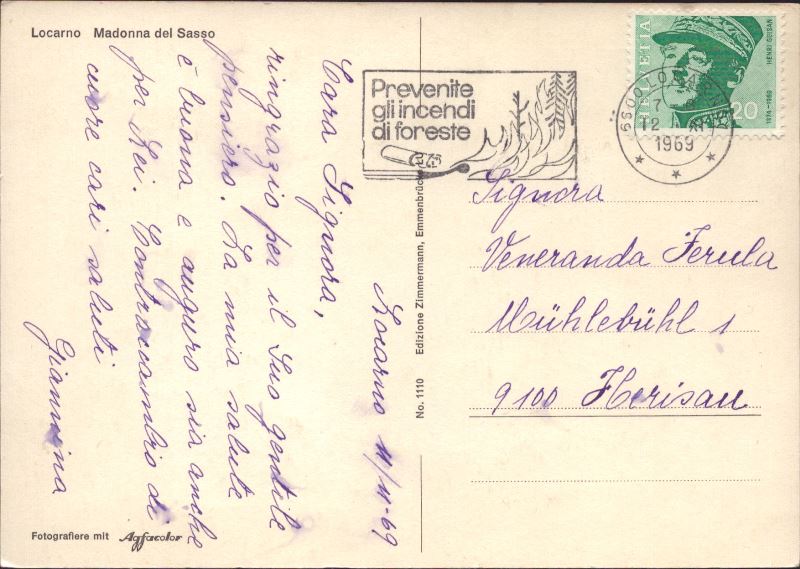 Locarno Madonna del Sasso
Locarno 11/11-69
Cara Signora,
ringrazio per il Suo gentile
pensiero. La mia salute
è buona e auguro sia anche
per Lei. Contraccambio di
cuore cari saluti
Giannina
Fotografiere mit Agfacolor
No. 1110 Edizione Zimmermann, Emmenbrücke
Prevenite
gli incendi
di foreste
6600 LOCARNO
12
1969
HELVETIA
HENRI GUISAN
1874-1960
20
Signora
Veneranda Ferula
Mühlebühl 1
9100 Herisau